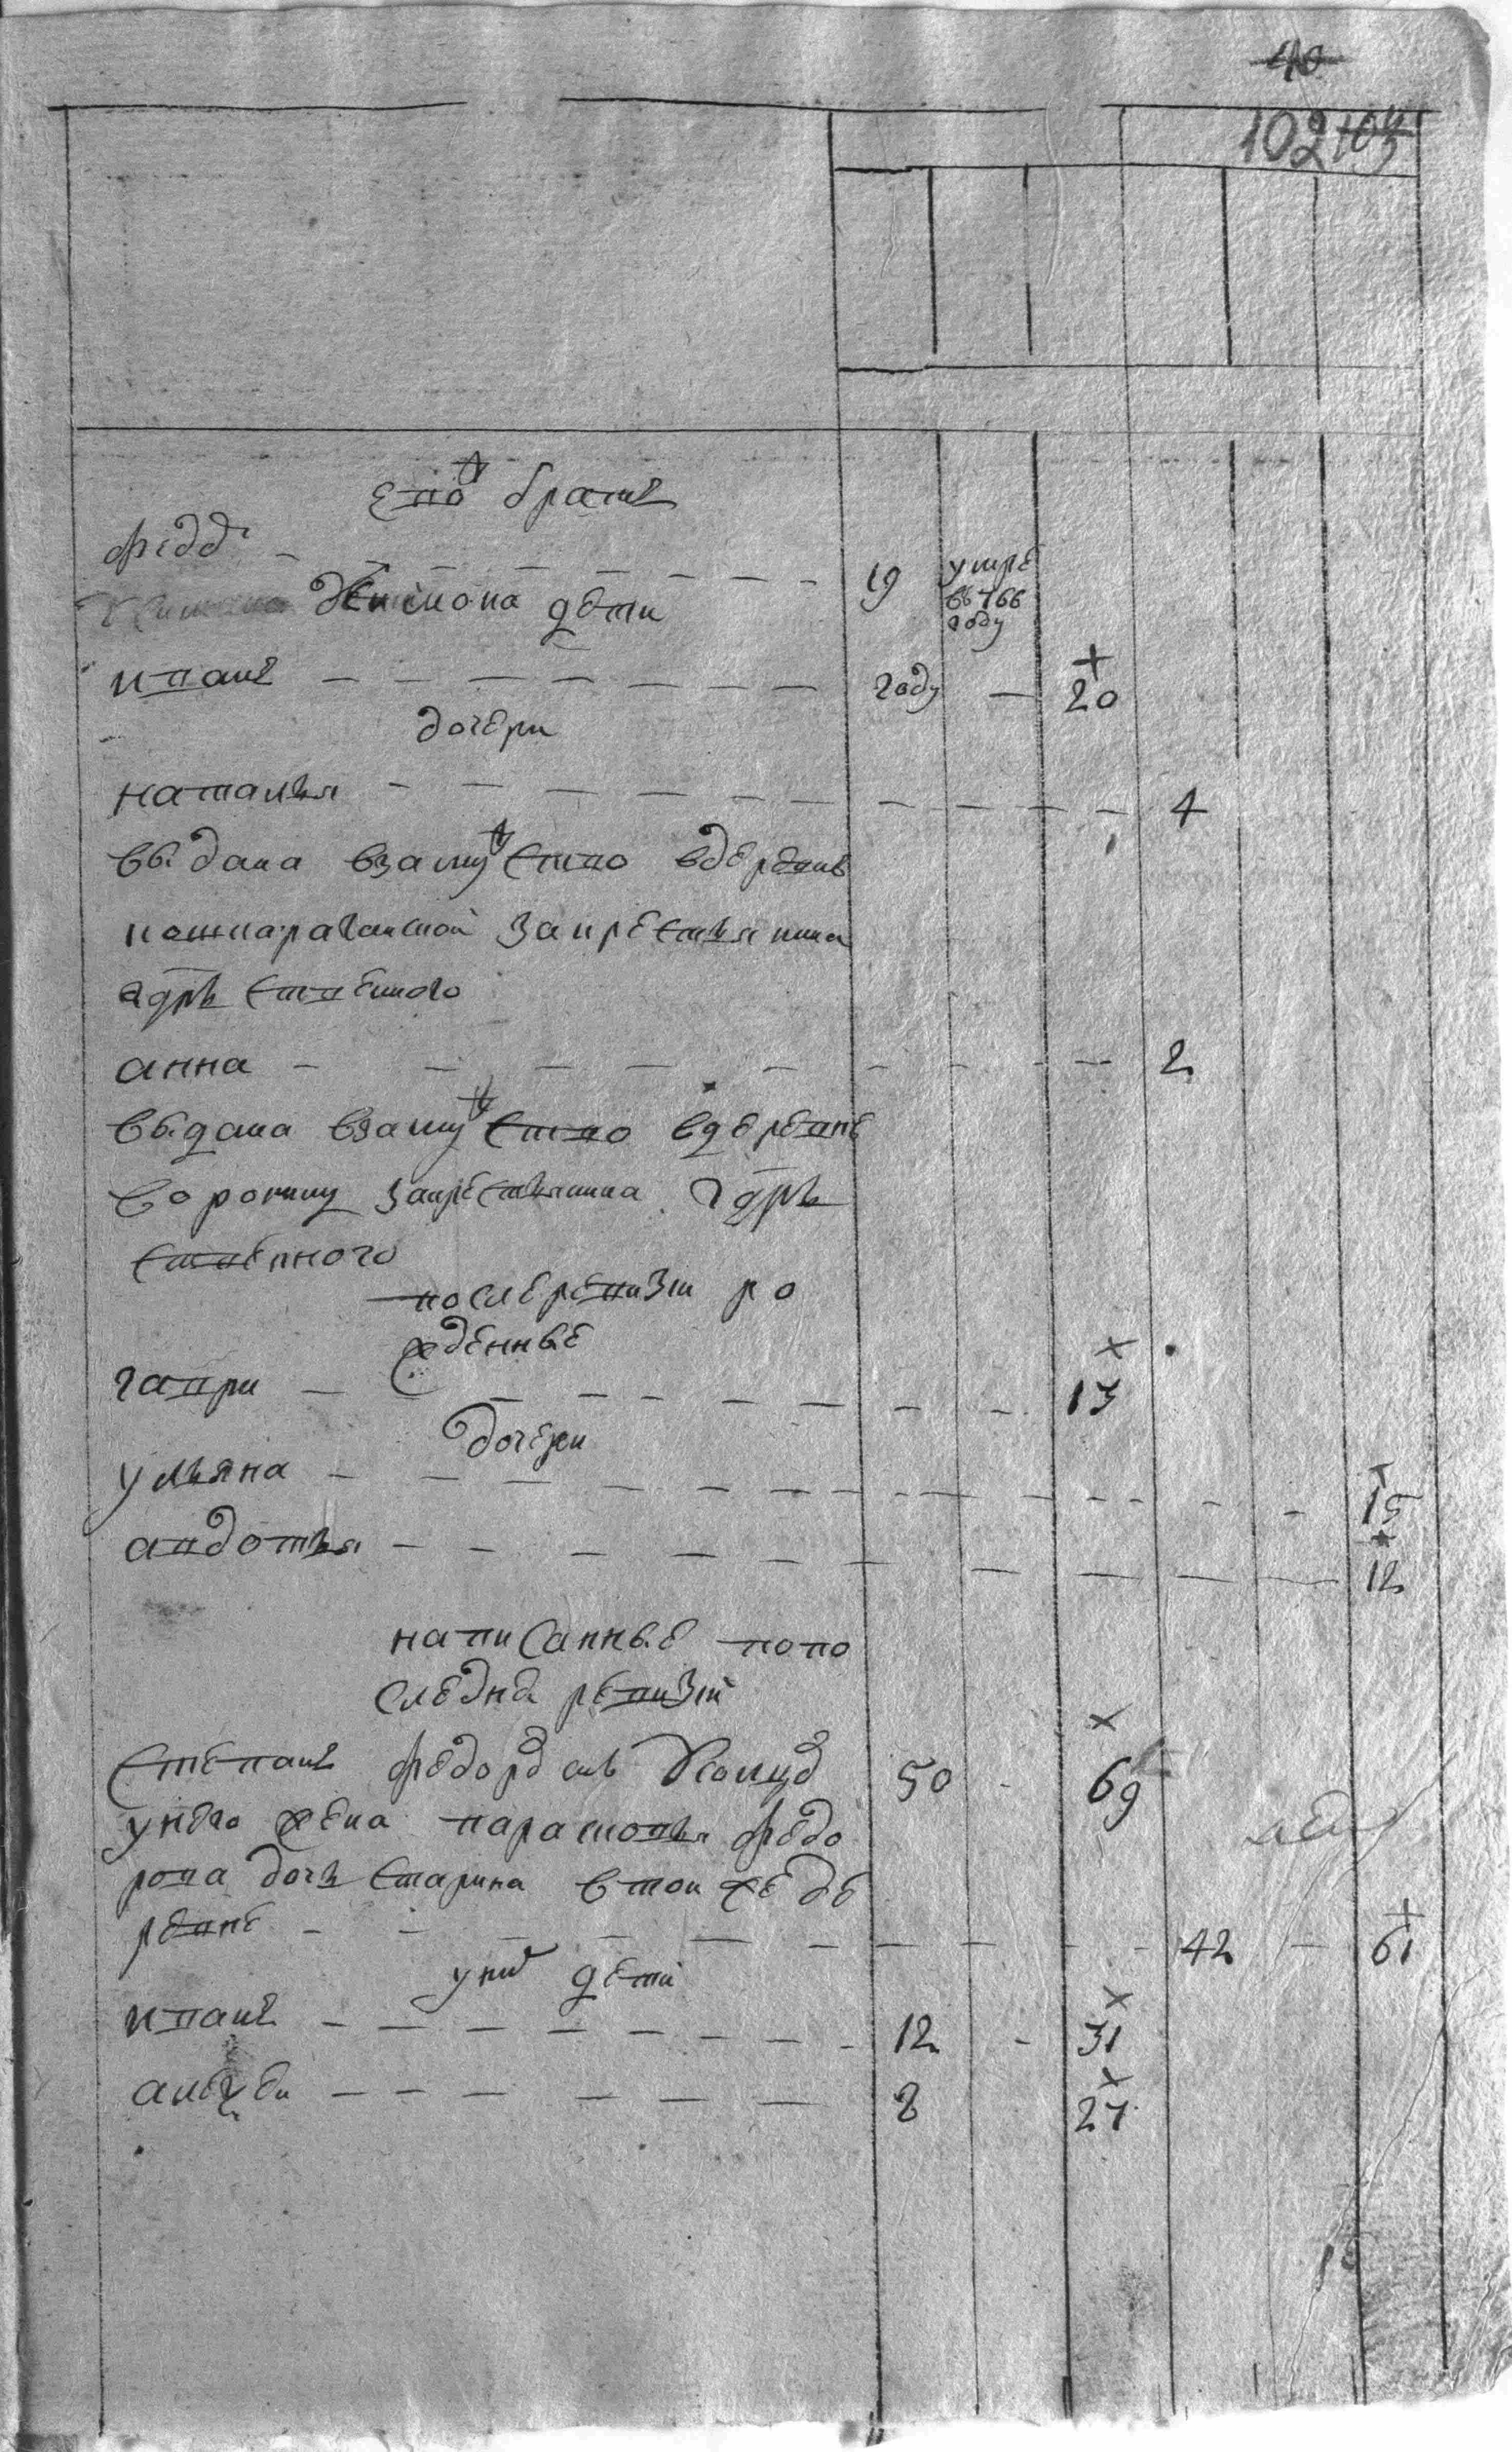 40
102 103
ево братъ
федор 19 умре
въ 766
году
Якимова дети
иванъ году 20
дочери
наталья 4
выдана взамужство вдеревню
закрестьянина
гдрственного
анна 2
выдана взамужство вдеревню
воронину закрестьянина гдрь
ственного
послеревизии ро
жденные
гаври 13
дочери
ульяна 15
авдотья 12
написанные попо
следней ревизии
Степанъ федоров снъ 50 69
унего жена парасковья федо
рова дочь старина втои же де
ревне 42 61
уних дети
иванъ 12 31
алексеи 8 27